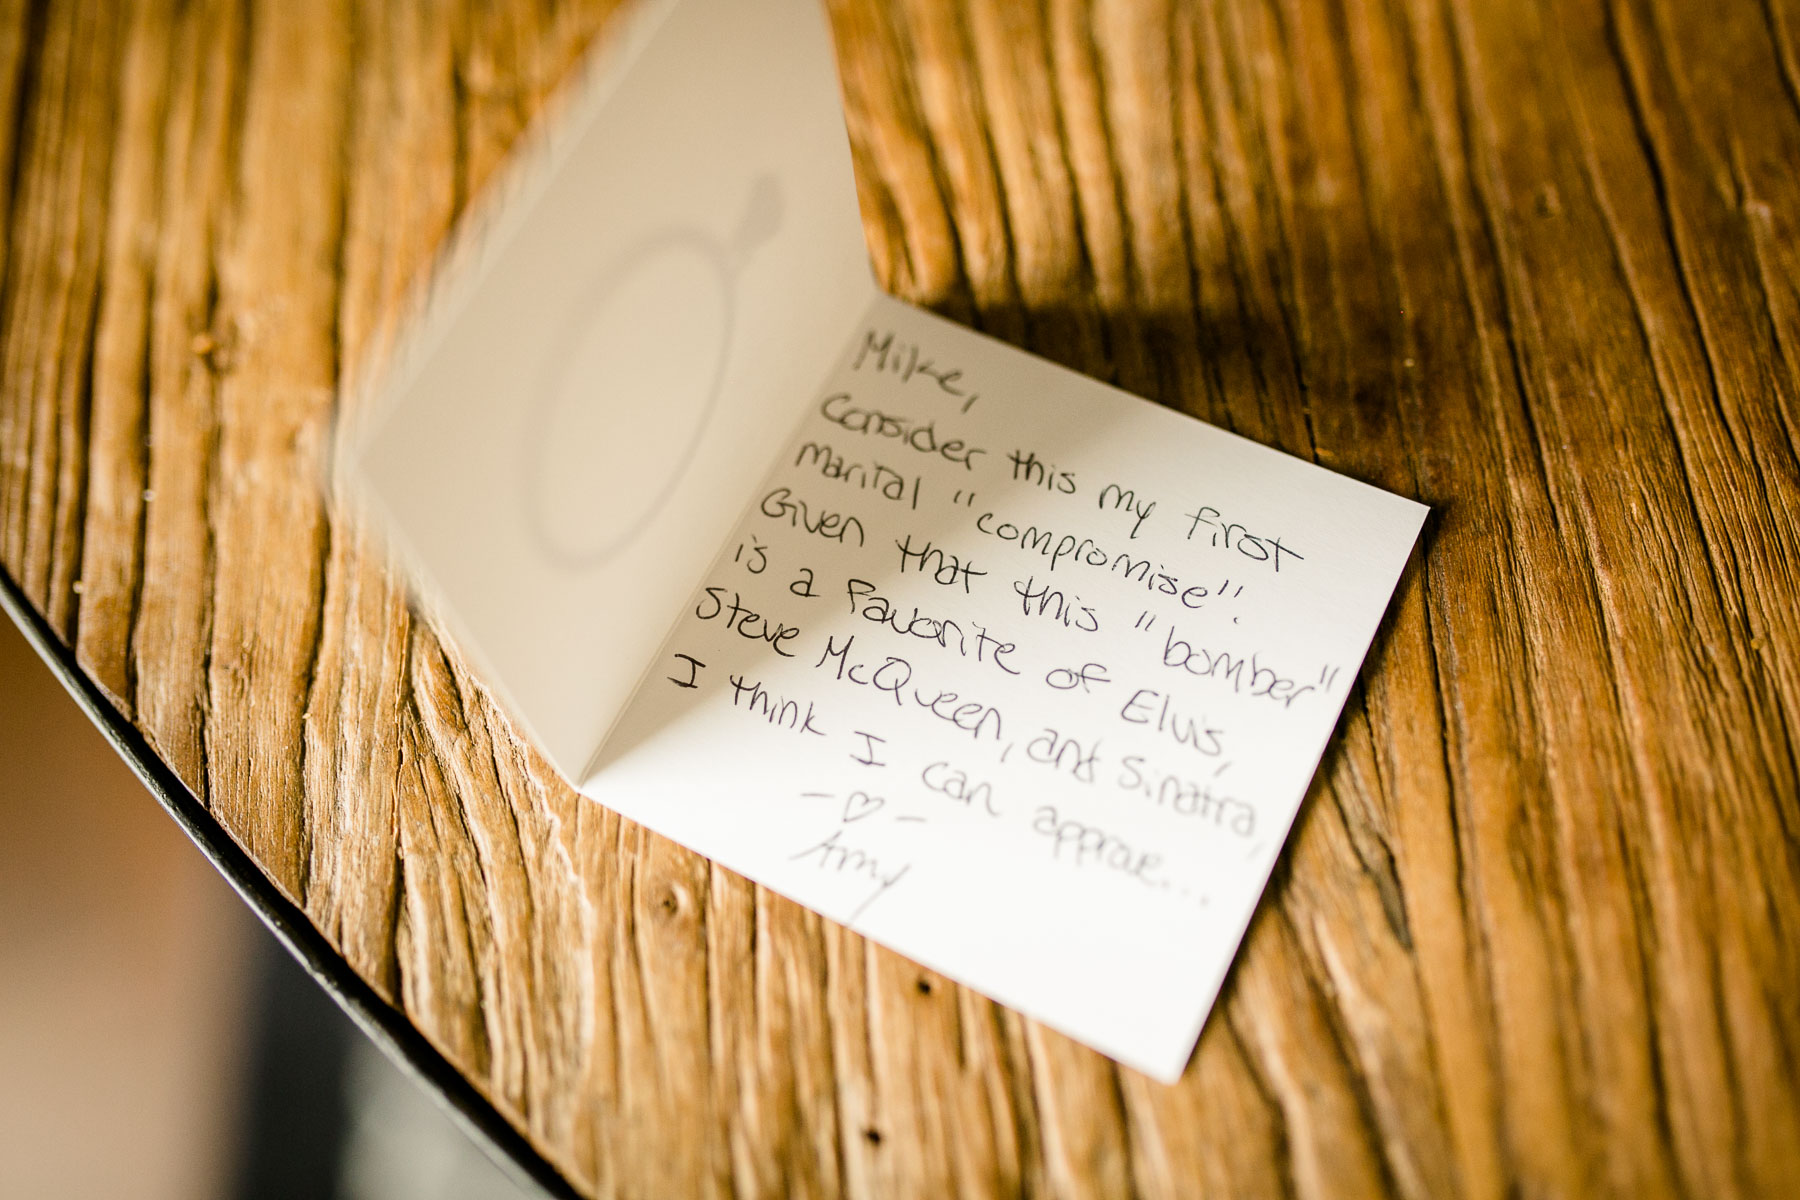 Mike,
Consider this my first
marital "compromise".
Given that this "bomber"
is a favorite of Elvis,
Steve McQueen, and Sinatra,
I think I can approve...
-♡-
Amy